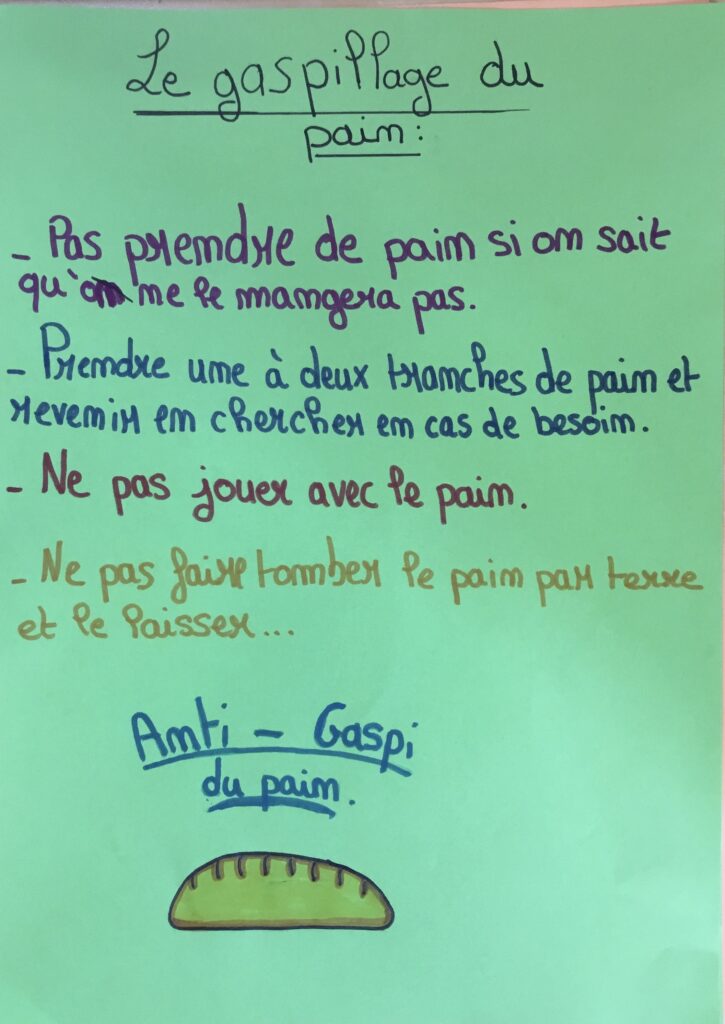 Le gaspillage du
pain :
- Pas prendre de pain si on sait
qu'on ne le mangera pas.
- Prendre une à deux tranches de pain et
revenir en chercher en cas de besoin.
- Ne pas jouer avec le pain.
- Ne pas faire tomber le pain par terre
et le laisser...
Anti - Gaspi
du pain.